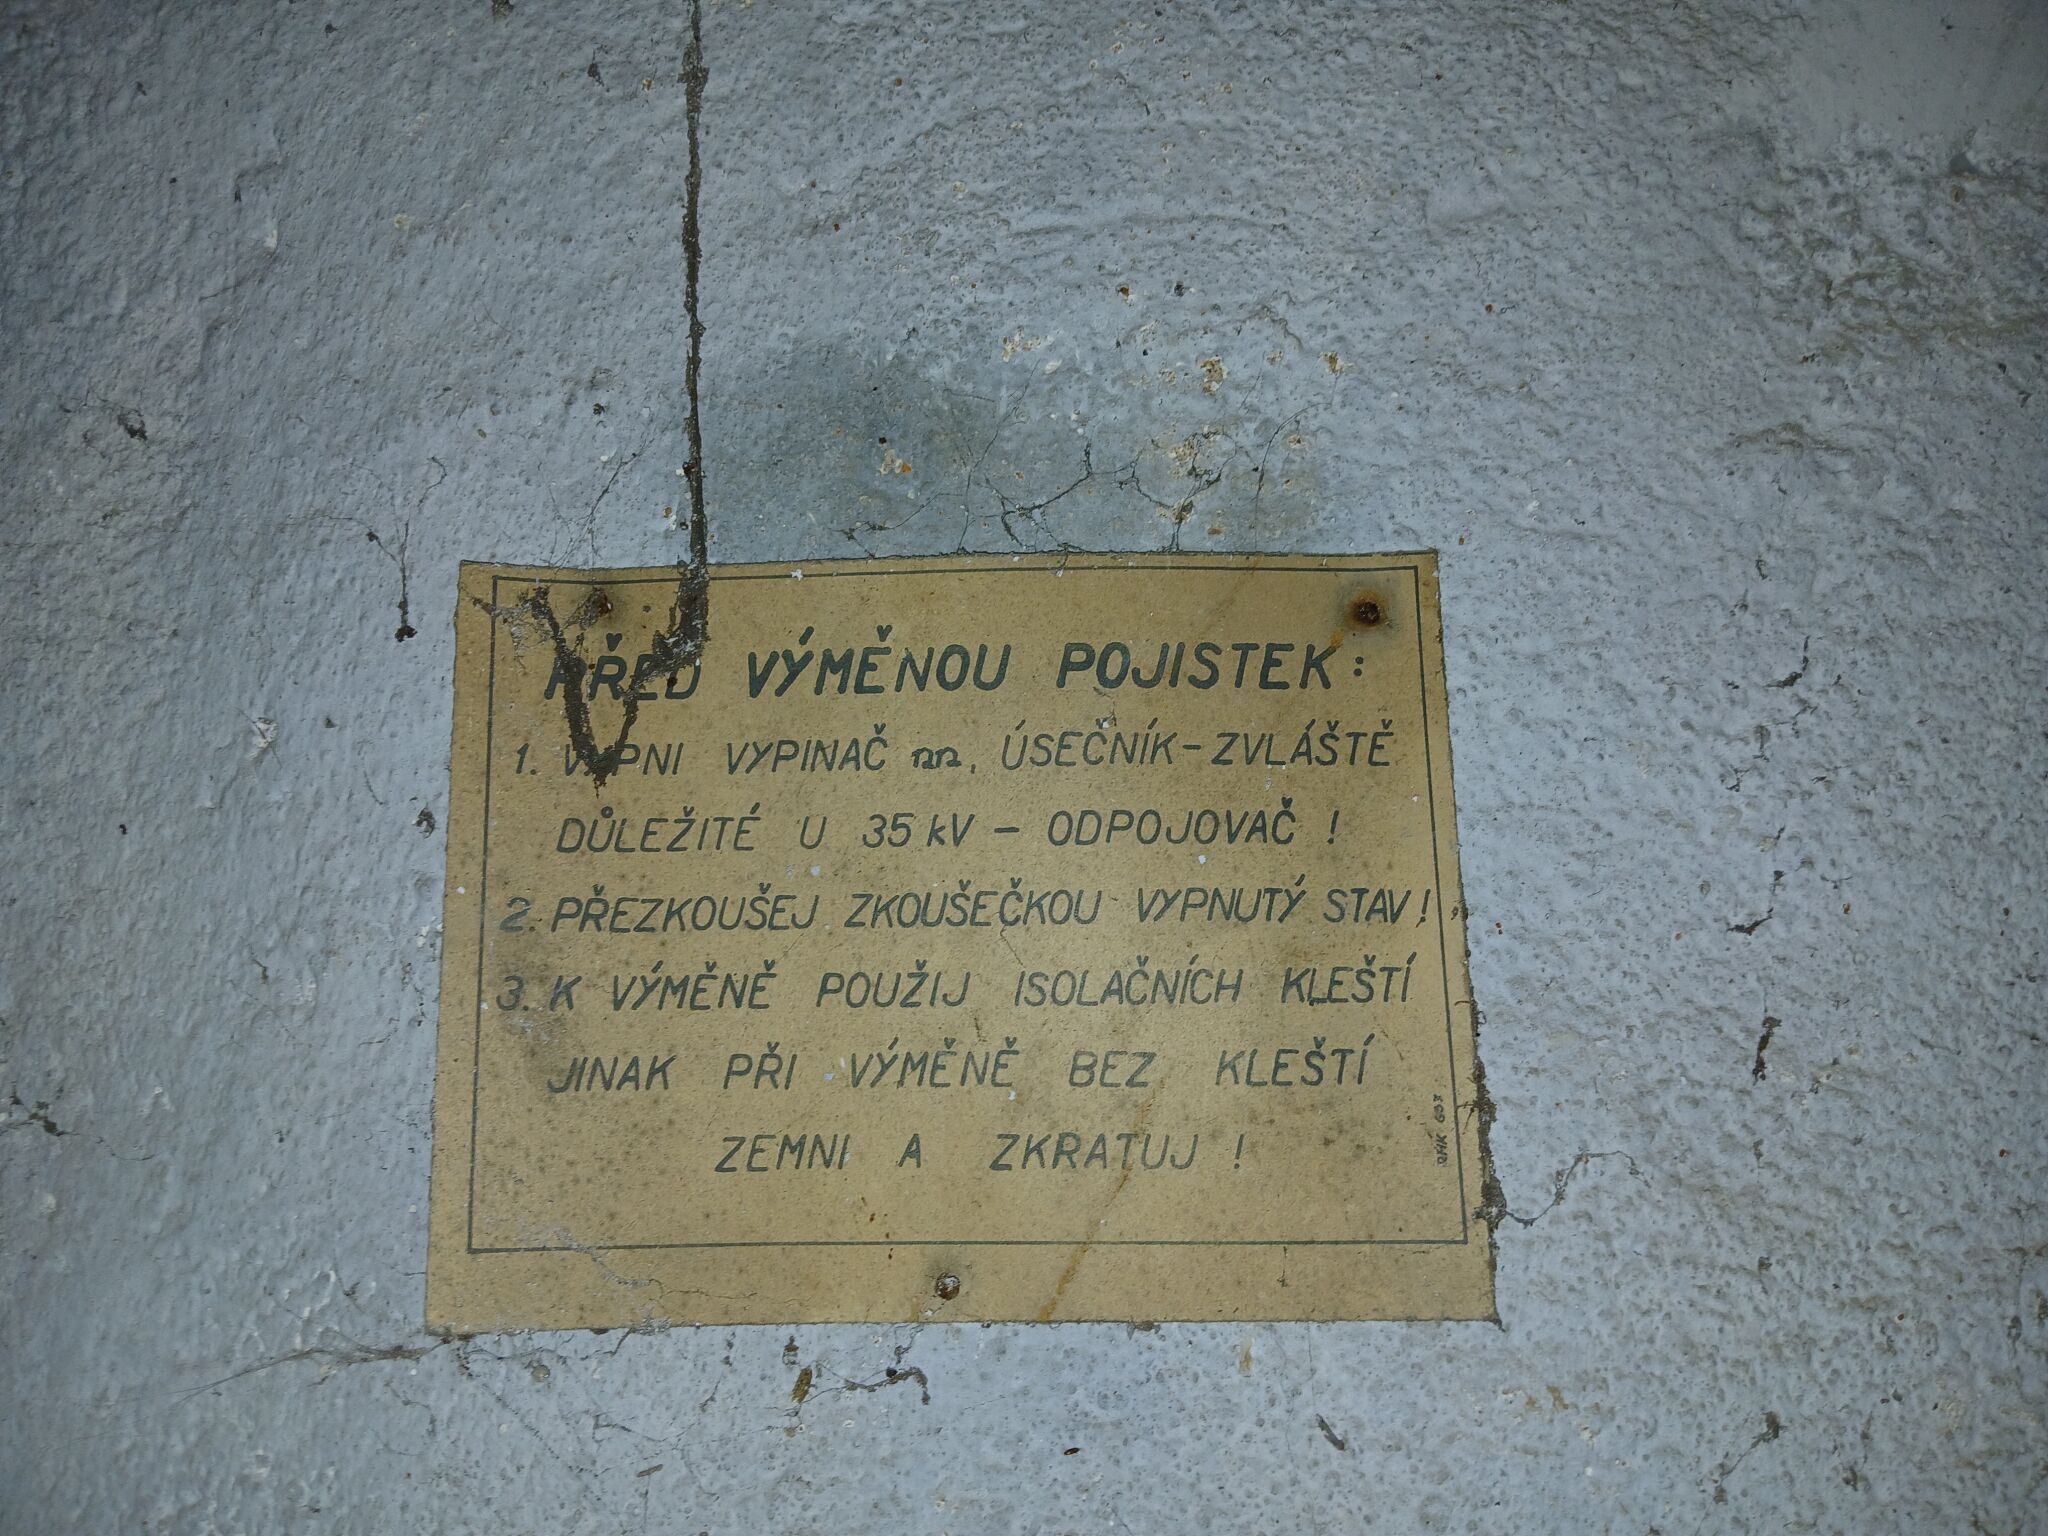 PŘED VÝMĚNOU POJISTEK:
1. VYPNI VYPINAČ nn, ÚSEČNÍK-ZVLÁŠTĚ
DŮLEŽITÉ U 35 kV - ODPOJOVAČ!
2. PŘEZKOUŠEJ ZKOUŠEČKOU VYPNUTÝ STAV!
3. K VÝMĚNĚ POUŽIJ ISOLAČNÍCH KLEŠTÍ
JINAK PŘI VÝMĚNĚ BEZ KLEŠTÍ
ZEMNI A ZKRATUJ!